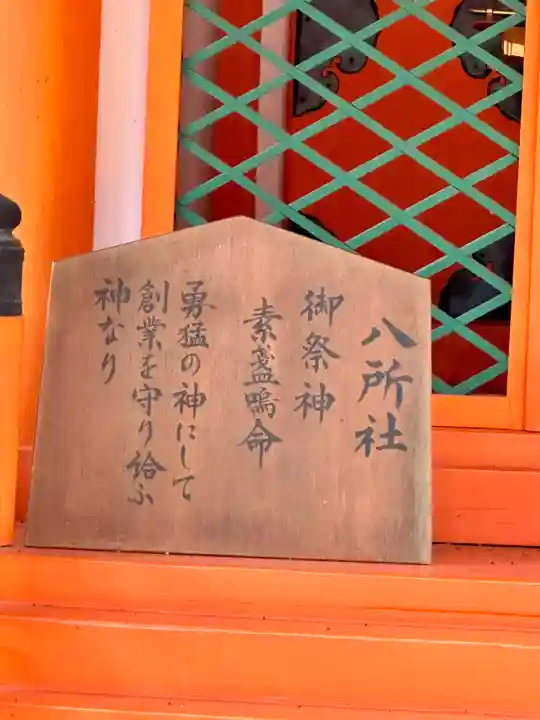 八所社
御祭神
素盞嗚命
勇猛の神にして
創業を守り給ふ
神なり